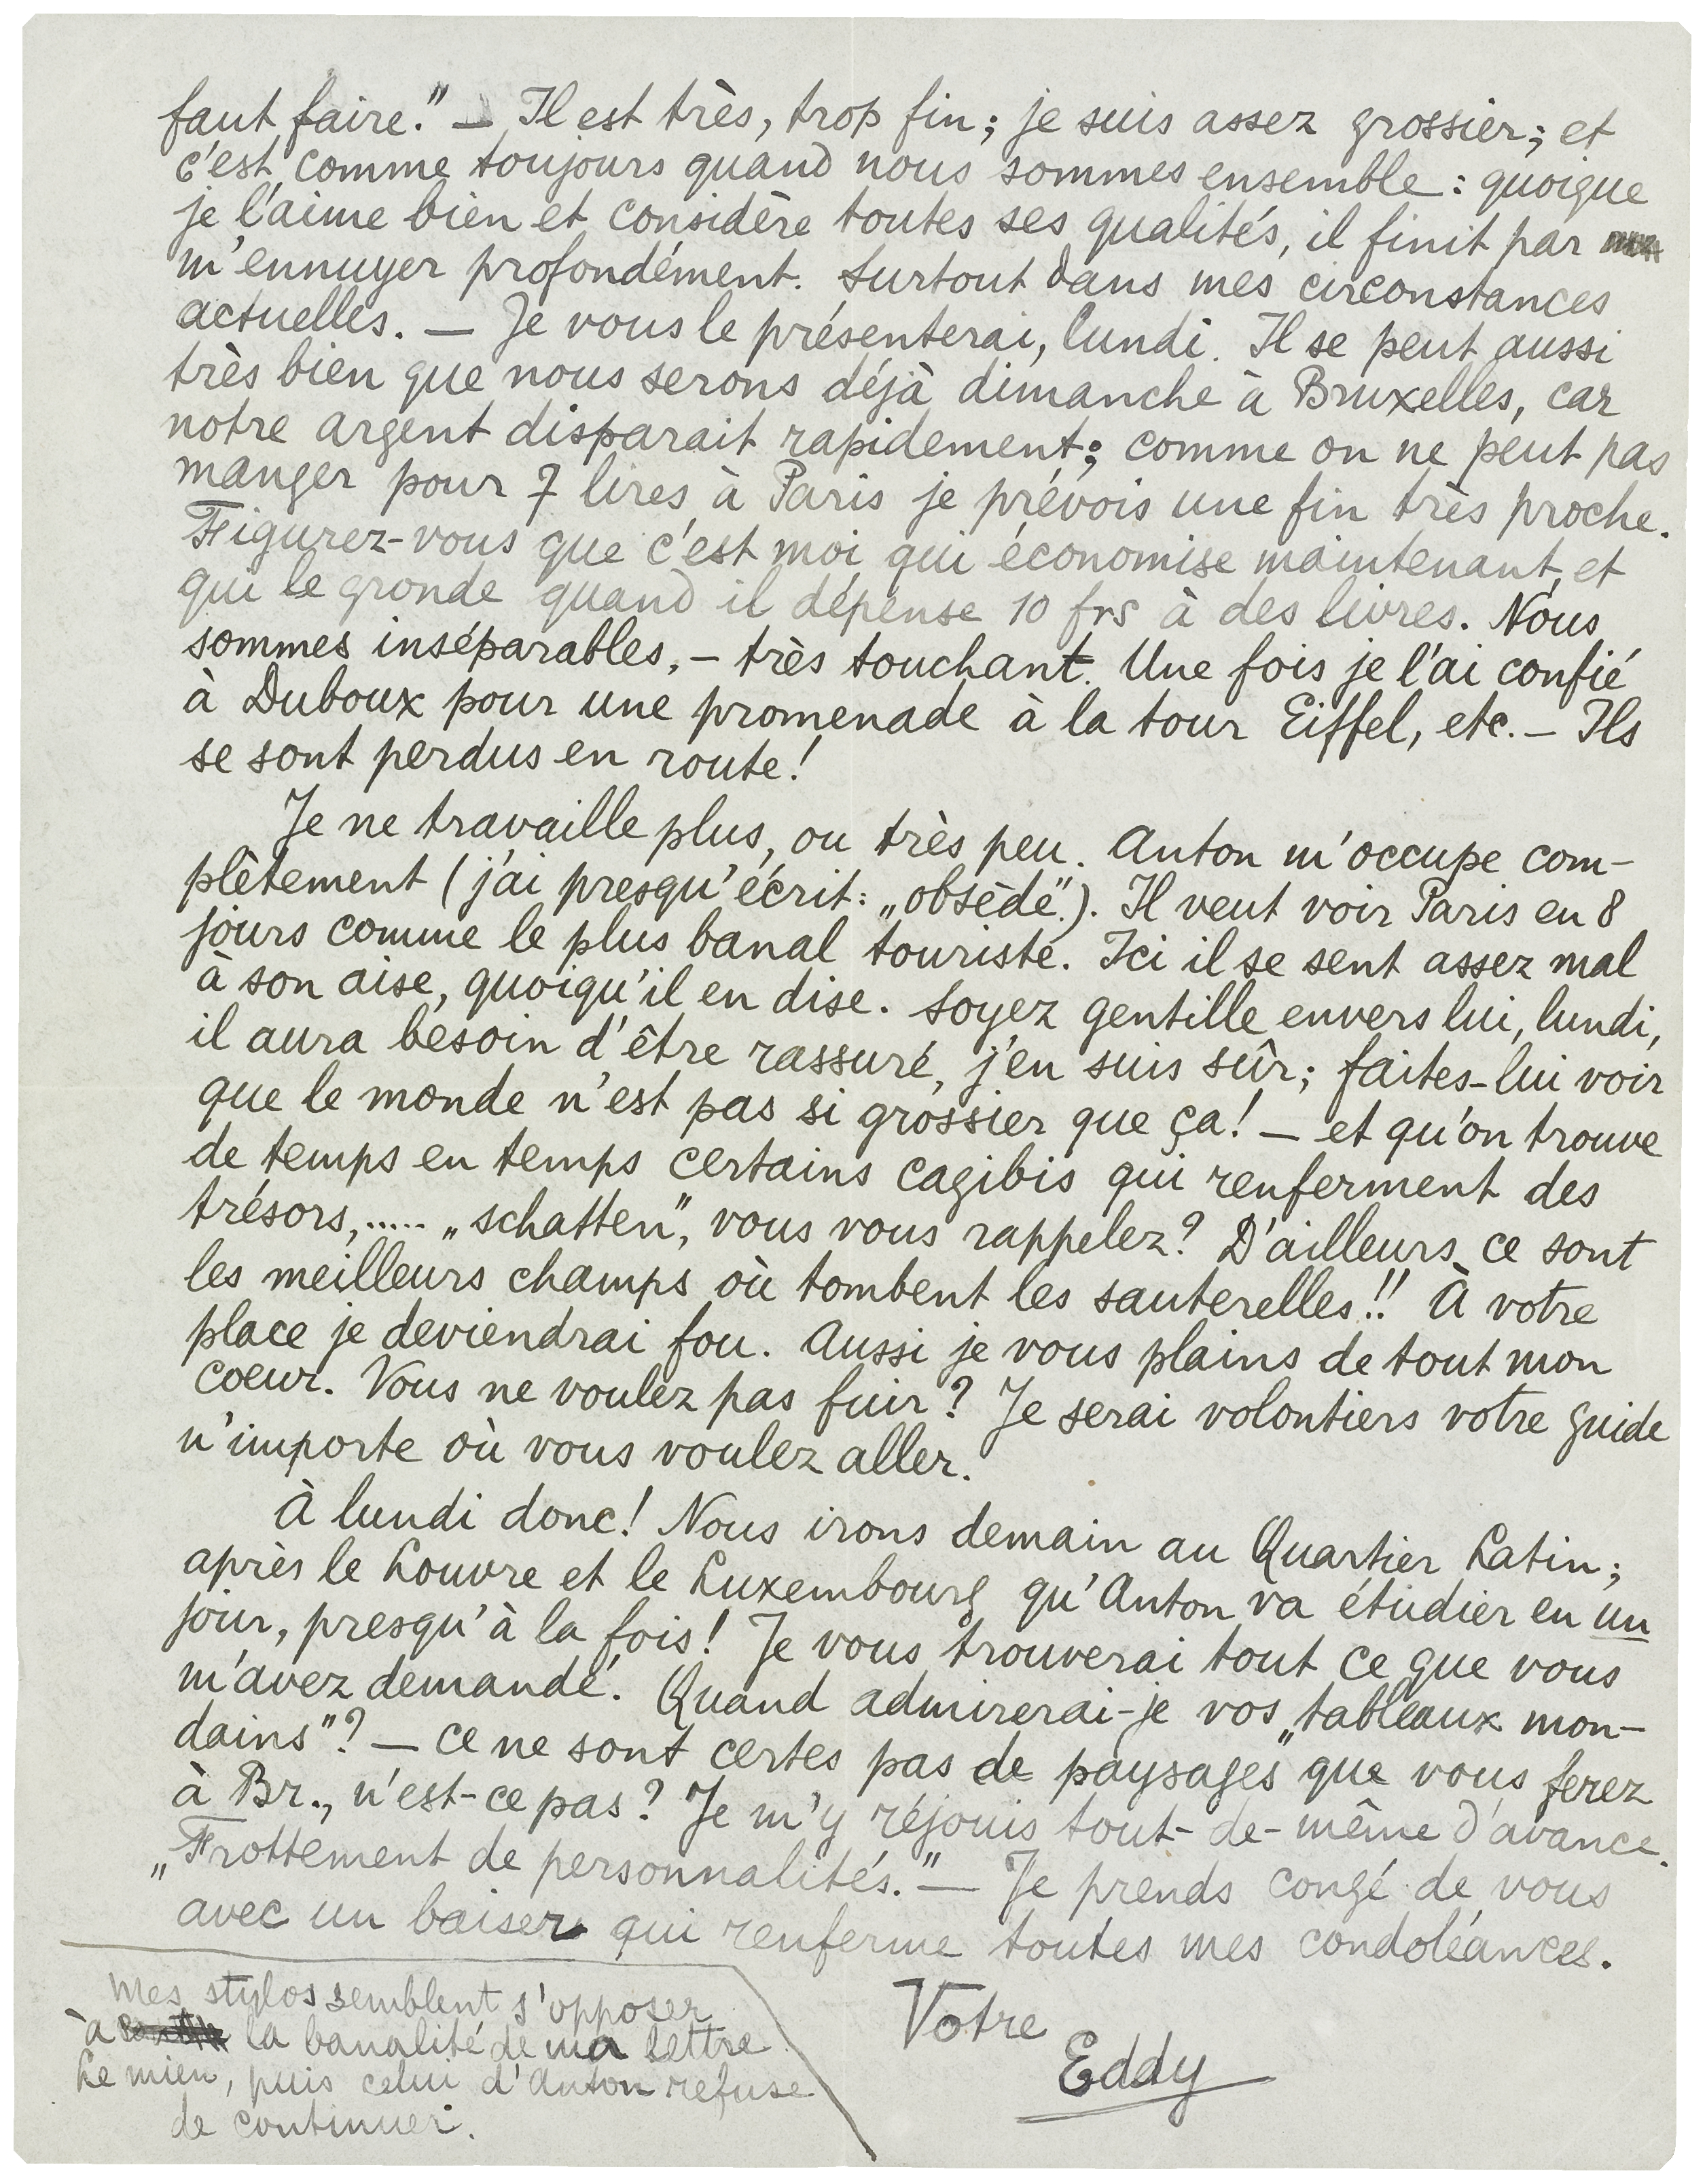 faut faire." — Il est très, trop fin; je suis assez grossier; et
c'est, comme toujours quand nous sommes ensemble : quoique
je l'aime bien et considère toutes ses qualités, il finit par
m'ennuyer profondément. Surtout dans mes circonstances
actuelles. — Je vous le présenterai, lundi. Il se peut aussi
très bien que nous serons déjà dimanche à Bruxelles, car
notre argent disparait rapidement; comme on ne peut pas
manger pour 7 lires à Paris je prévois une fin très proche.
Figurez-vous que c'est moi qui économise maintenant, et
qui le gronde quand il dépense 10 frs à des livres. Nous
sommes inséparables, – très touchant. Une fois je l'ai confié
à Duboux pour une promenade à la tour Eiffel, etc. – Ils
se sont perdus en route!
Je ne travaille plus, ou très peu. Anton m'occupe com-
plètement (j'ai presqu'écrit: „obsède".). Il veut voir Paris en 8
jours comme le plus banal touriste. Ici il se sent assez mal
à son aise, quoiqu'il en dise. Soyez gentille envers lui, lundi,
il aura besoin d'être rassuré, j'en suis sûr; faites-lui voir
que le monde n'est pas si grossier que ça! — et qu'on trouve
de temps en temps certains cagibis qui renferment des
trésors,..... „schatten", vous vous rappelez? D'ailleurs ce sont
les meilleurs champs où tombent les sauterelles!! À votre
place je deviendrai fou. Aussi je vous plains de tout mon
coeur. Vous ne voulez pas fuir? Je serai volontiers votre guide
n'importe où vous voulez aller.
À lundi donc! Nous irons demain au Quartier Latin;
après le Louvre et le Luxembourg qu'Anton va étudier en un
jour, presqu'à la fois! Je vous trouverai tout ce que vous
m'avez demandé. Quand admirerai-je vos „tableaux mon-
dains"? — ce ne sont certes pas de paysages que vous ferez
à Br., n'est-ce pas? Je m'y réjouis tout-de-même d'avance.
„Frottement de personnalités." — Je prends congé de vous
avec un baiser qui renferme toutes mes condoléances.
Votre
Eddy
Mes stylos semblent s'opposer
à la banalité de ma lettre.
Le mien, puis celui d'Anton refuse
de continuer.